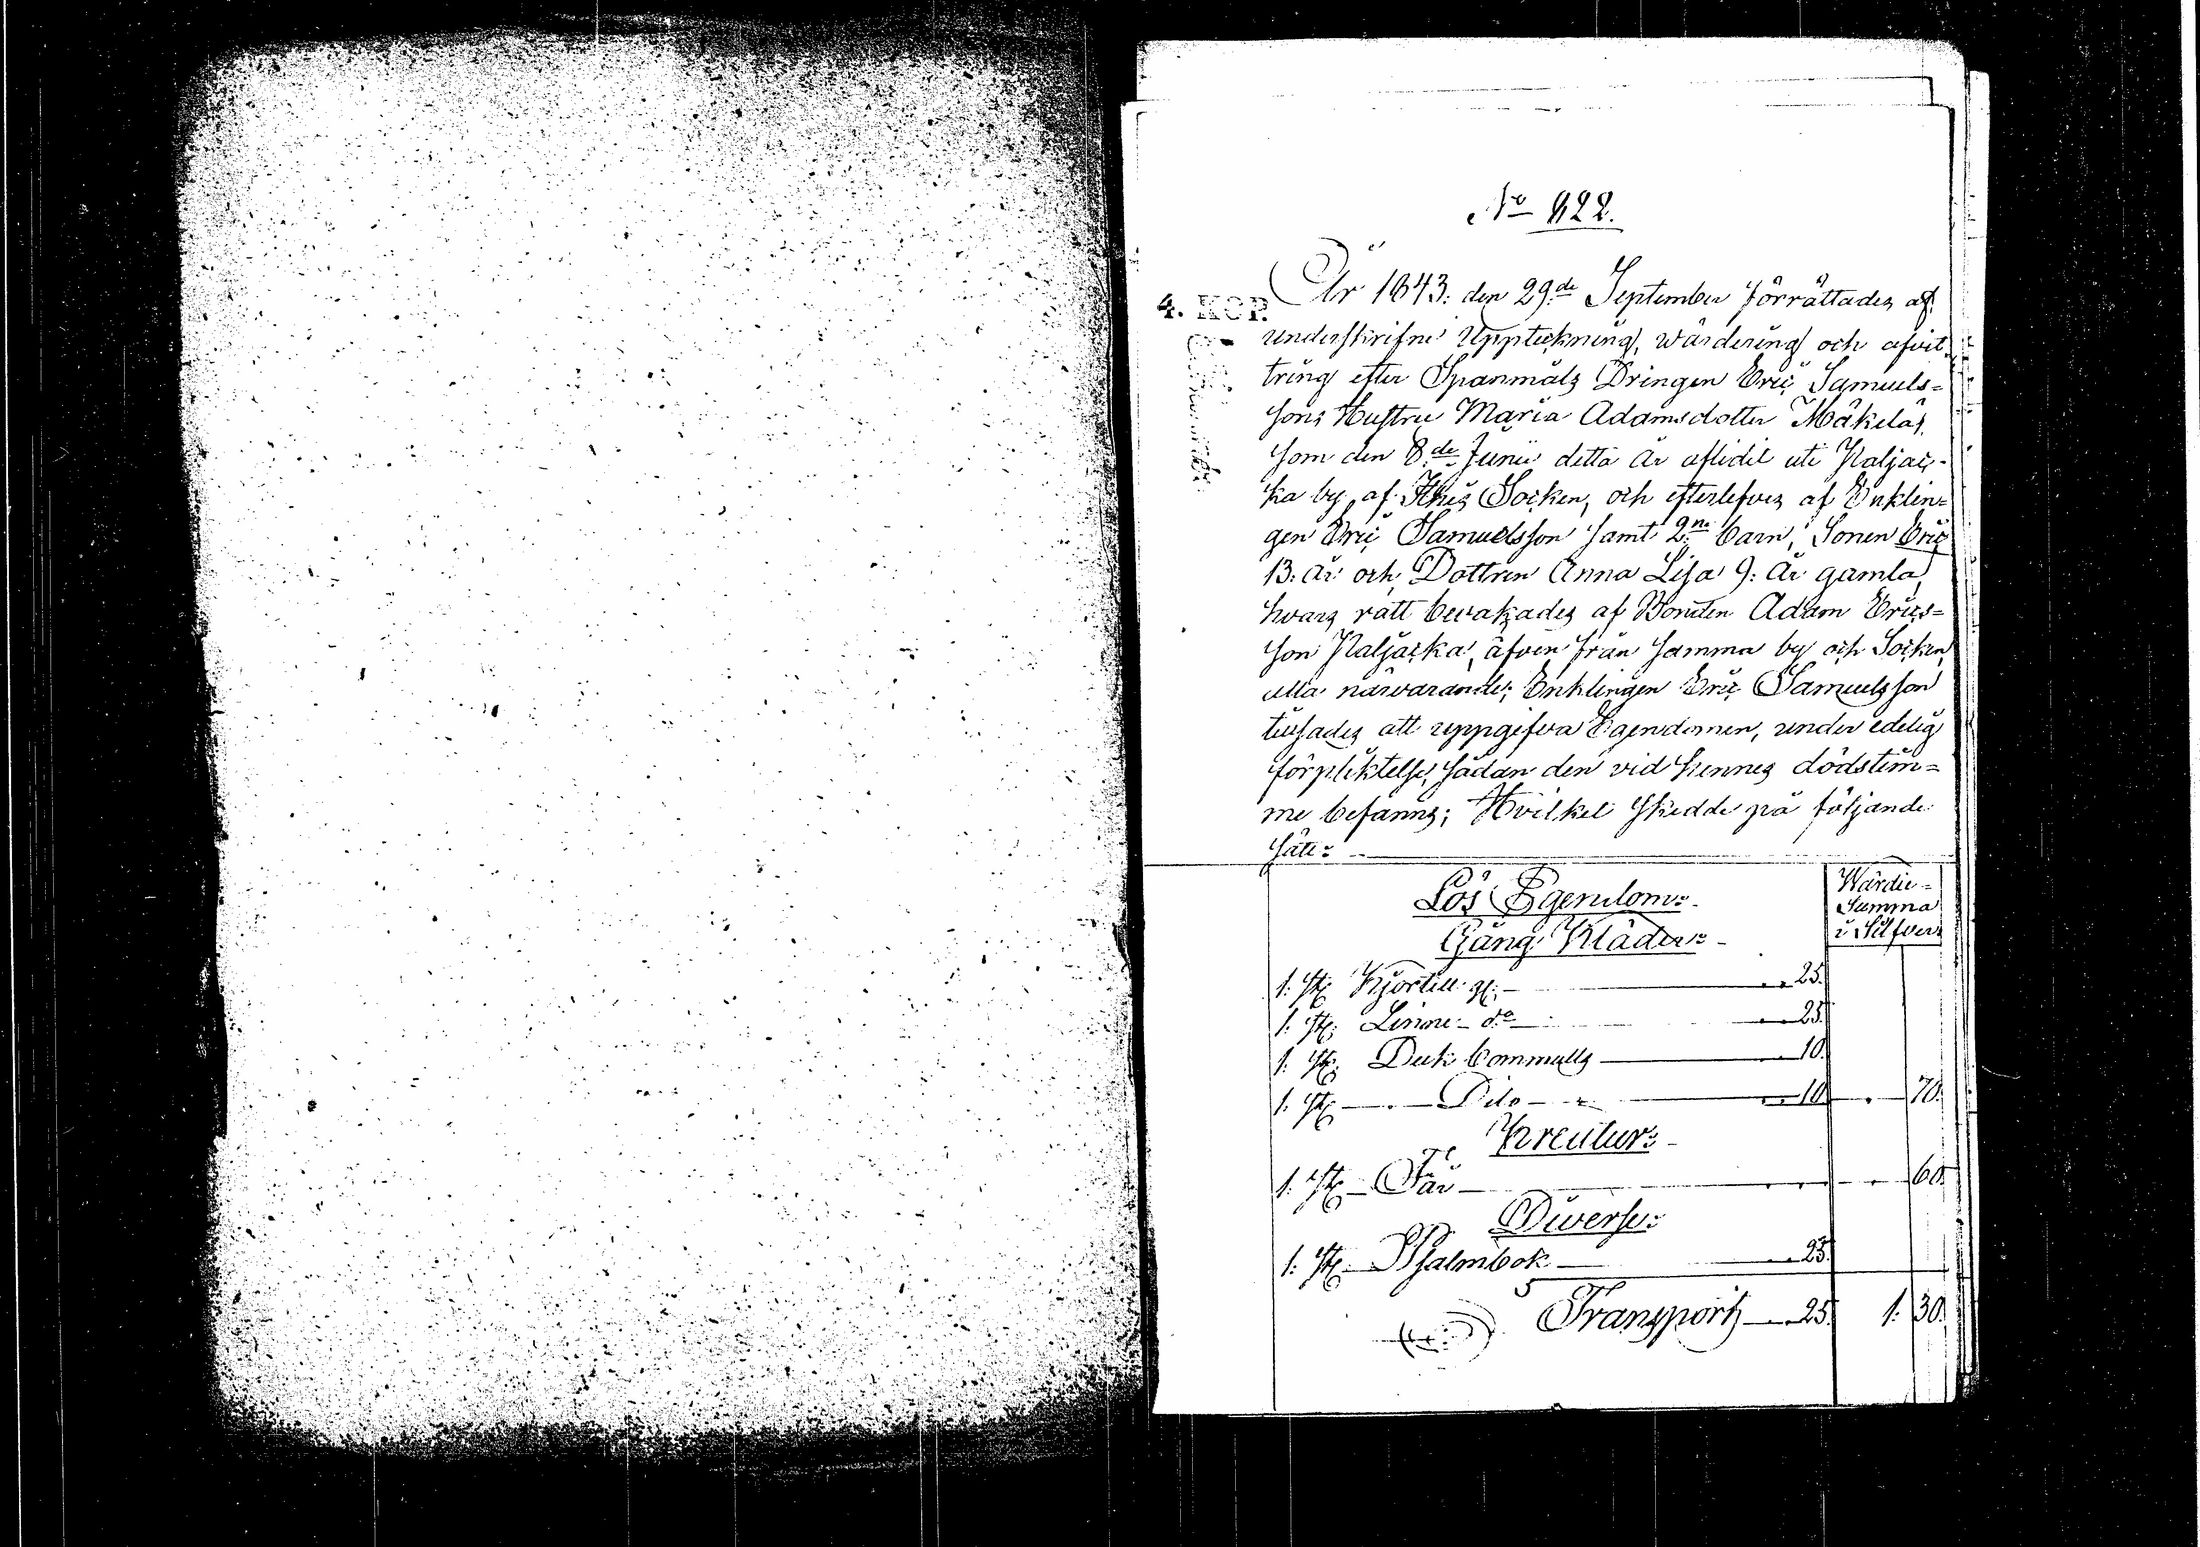 No 822.
4. KOP.
År 1843. den 29de September förrättades af
underskrifne Uppteckning, wärdering och afvit
tring efter Spanmåls Dringen Eric Samuels=
sons Hustru Maria Adamsdotter Mäkelä,
som den 8de Junii detta År aflidit uti Naljac-
ka by af Socken, och efterlefves af Enklin=
gen Eric Samuelsson samt 2ne barn, Sonen Eric
13. År och Dottren Anna Lisa 9. År gamla,
hvars rätt bevakades af Bonden Adam Erics=
son Naljacka, äfven från samma by och Socken,
alla närvarande; Enklingen Eric Samuelsson
tillsades att uppgifva Egendomen, under edelig
förpliktelse, sådan den vid hennes dödstim=
me befanns; Hvilket skedde på följande
sätt:
Lös Egendom:
Wärdie=
Summa
i Silfver
Gång Kläder:
1. st. Kjortill gl. 25.
1. st. Linne do 25.
1. st. Duk bommulls 10.
1. st. Dito 10. 70.
Kreatur:
1. st. Får 60.
Diverse:
1. st. Psalmbok 25.
Transport 25. 1. 30.